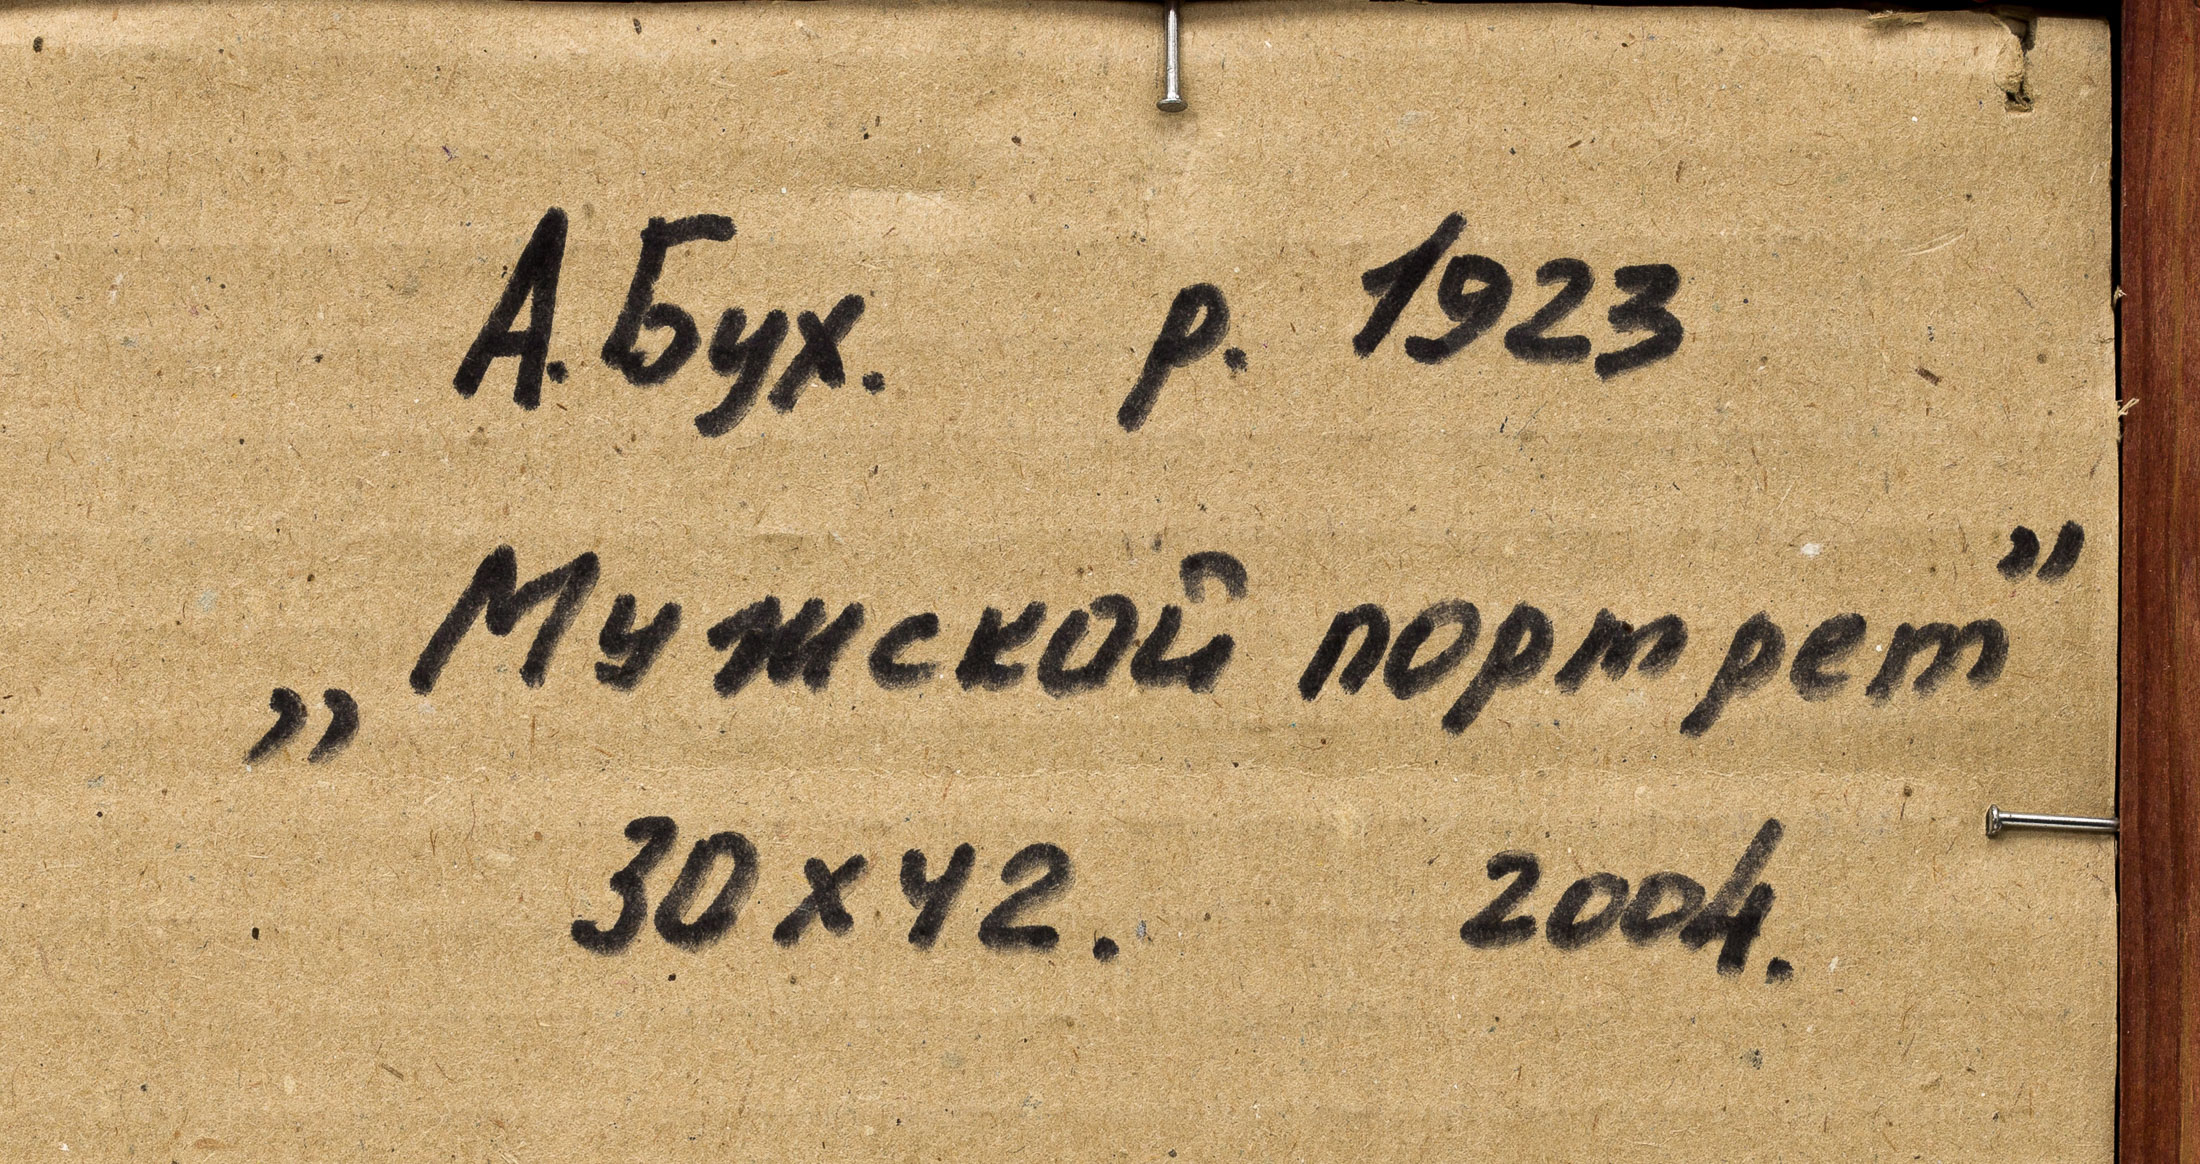 А. Бух. р. 1923
„Мужской портрет”
30 х 42. 2004.